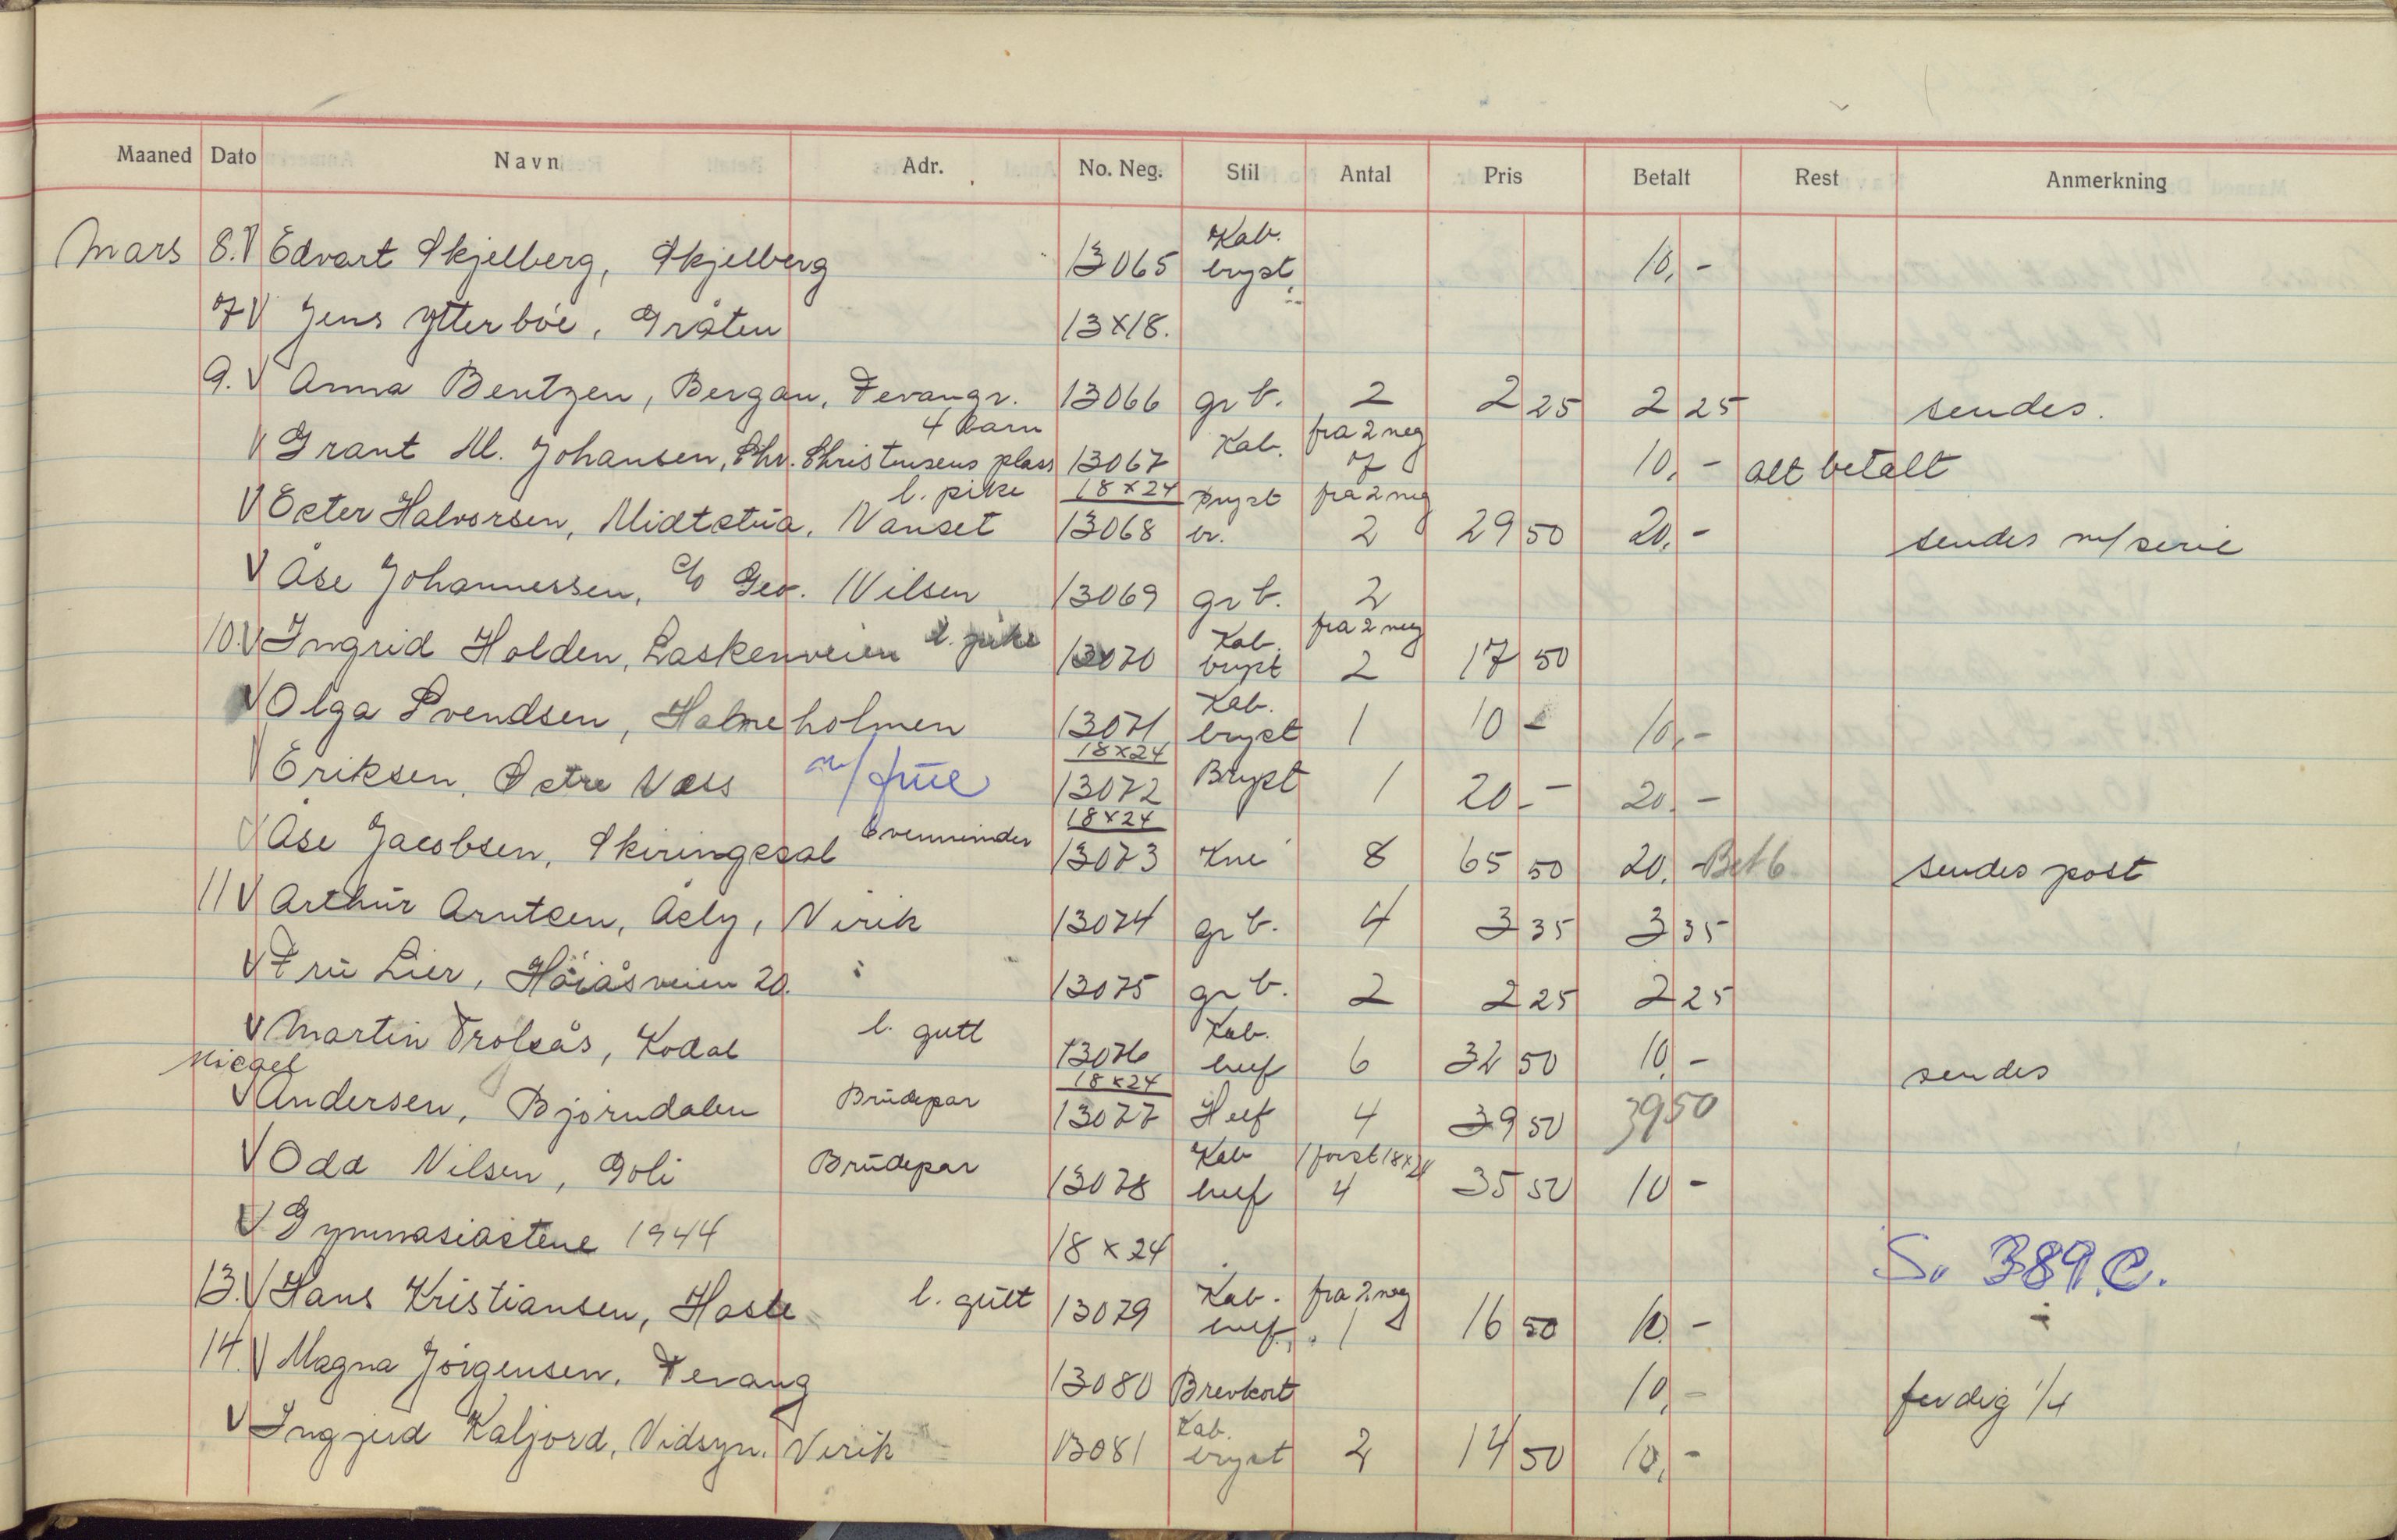 Maaned Dato Navn Adr. No. Neg. Stil Antal Pris Betalt Rest Anmerkning
Mars 8. V Edvart Skjelberg, Skjelberg 13065 Kab. bryst. 10,-
7 V Jens Ytterböe, Gråten 13x18.
9. V Anna Bentzen, Bergan, Tevangr. 13066 gr b. 2 2 25 2 25 sendes.
V Grant M. Johansen, Chr. Christensens plass 4 barn 13067 Kab. fra 2 neg 7 10,- alt betalt
V Ester Halvorsen, Midtstua, Nanset l. pike 18x24 13068 bryst br. fra 2 neg 2 29 50 20,- sendes m/serie
V Åse Johannessen, c/o Geo. Nilsen 13069 gr b. 2
10. V Ingrid Holden, Laskenveien l. pike 13070 Kab. bryst fra 2 neg 2 17 50
V Olga Svendsen, Holmeholmen 13071 Kab. bryst 1 10 - 10,-
V Eriksen, Østre Nes m/frue 18x24 13072 Bryst 1 20.- 20.-
V Åse Jacobsen, Skiringssal 18x24 13073 Kne 8 65 50 20. sendes post
11 V Arthur Arntsen, Åsly, Virik 13074 gr b. 4 3 35 3 35
V Fru Lier, Höiåsveien 20. 13075 gr b. 2 2 25 2 25
V Martin Trolsås, Kodal l. gutt 13076 Kab. heef 6 32 50 10,- sendes
Migael
V Andersen, Björndalen Brudepar 18x24 13077 Heef 4 39 50 39 50
V Odd Nilsen, Goli Brudepar 13078 Kab heef 1 forst 18x24 4 35 50 10 -
V Gymnasiastene 1944 18x24 S. 389.C.
13. V Hans Kristiansen, Hasle l. gutt 13079 Kab. heef. fra 2 neg 1 16 50 10.-
14. V Magna Jörgensen, Tevang 13080 Brevkort 10,- ferdig 1/4
V Ingjerd Kaljord, Vidsyn, Virik 13081 Kab. bryst 2 14 50 10,-